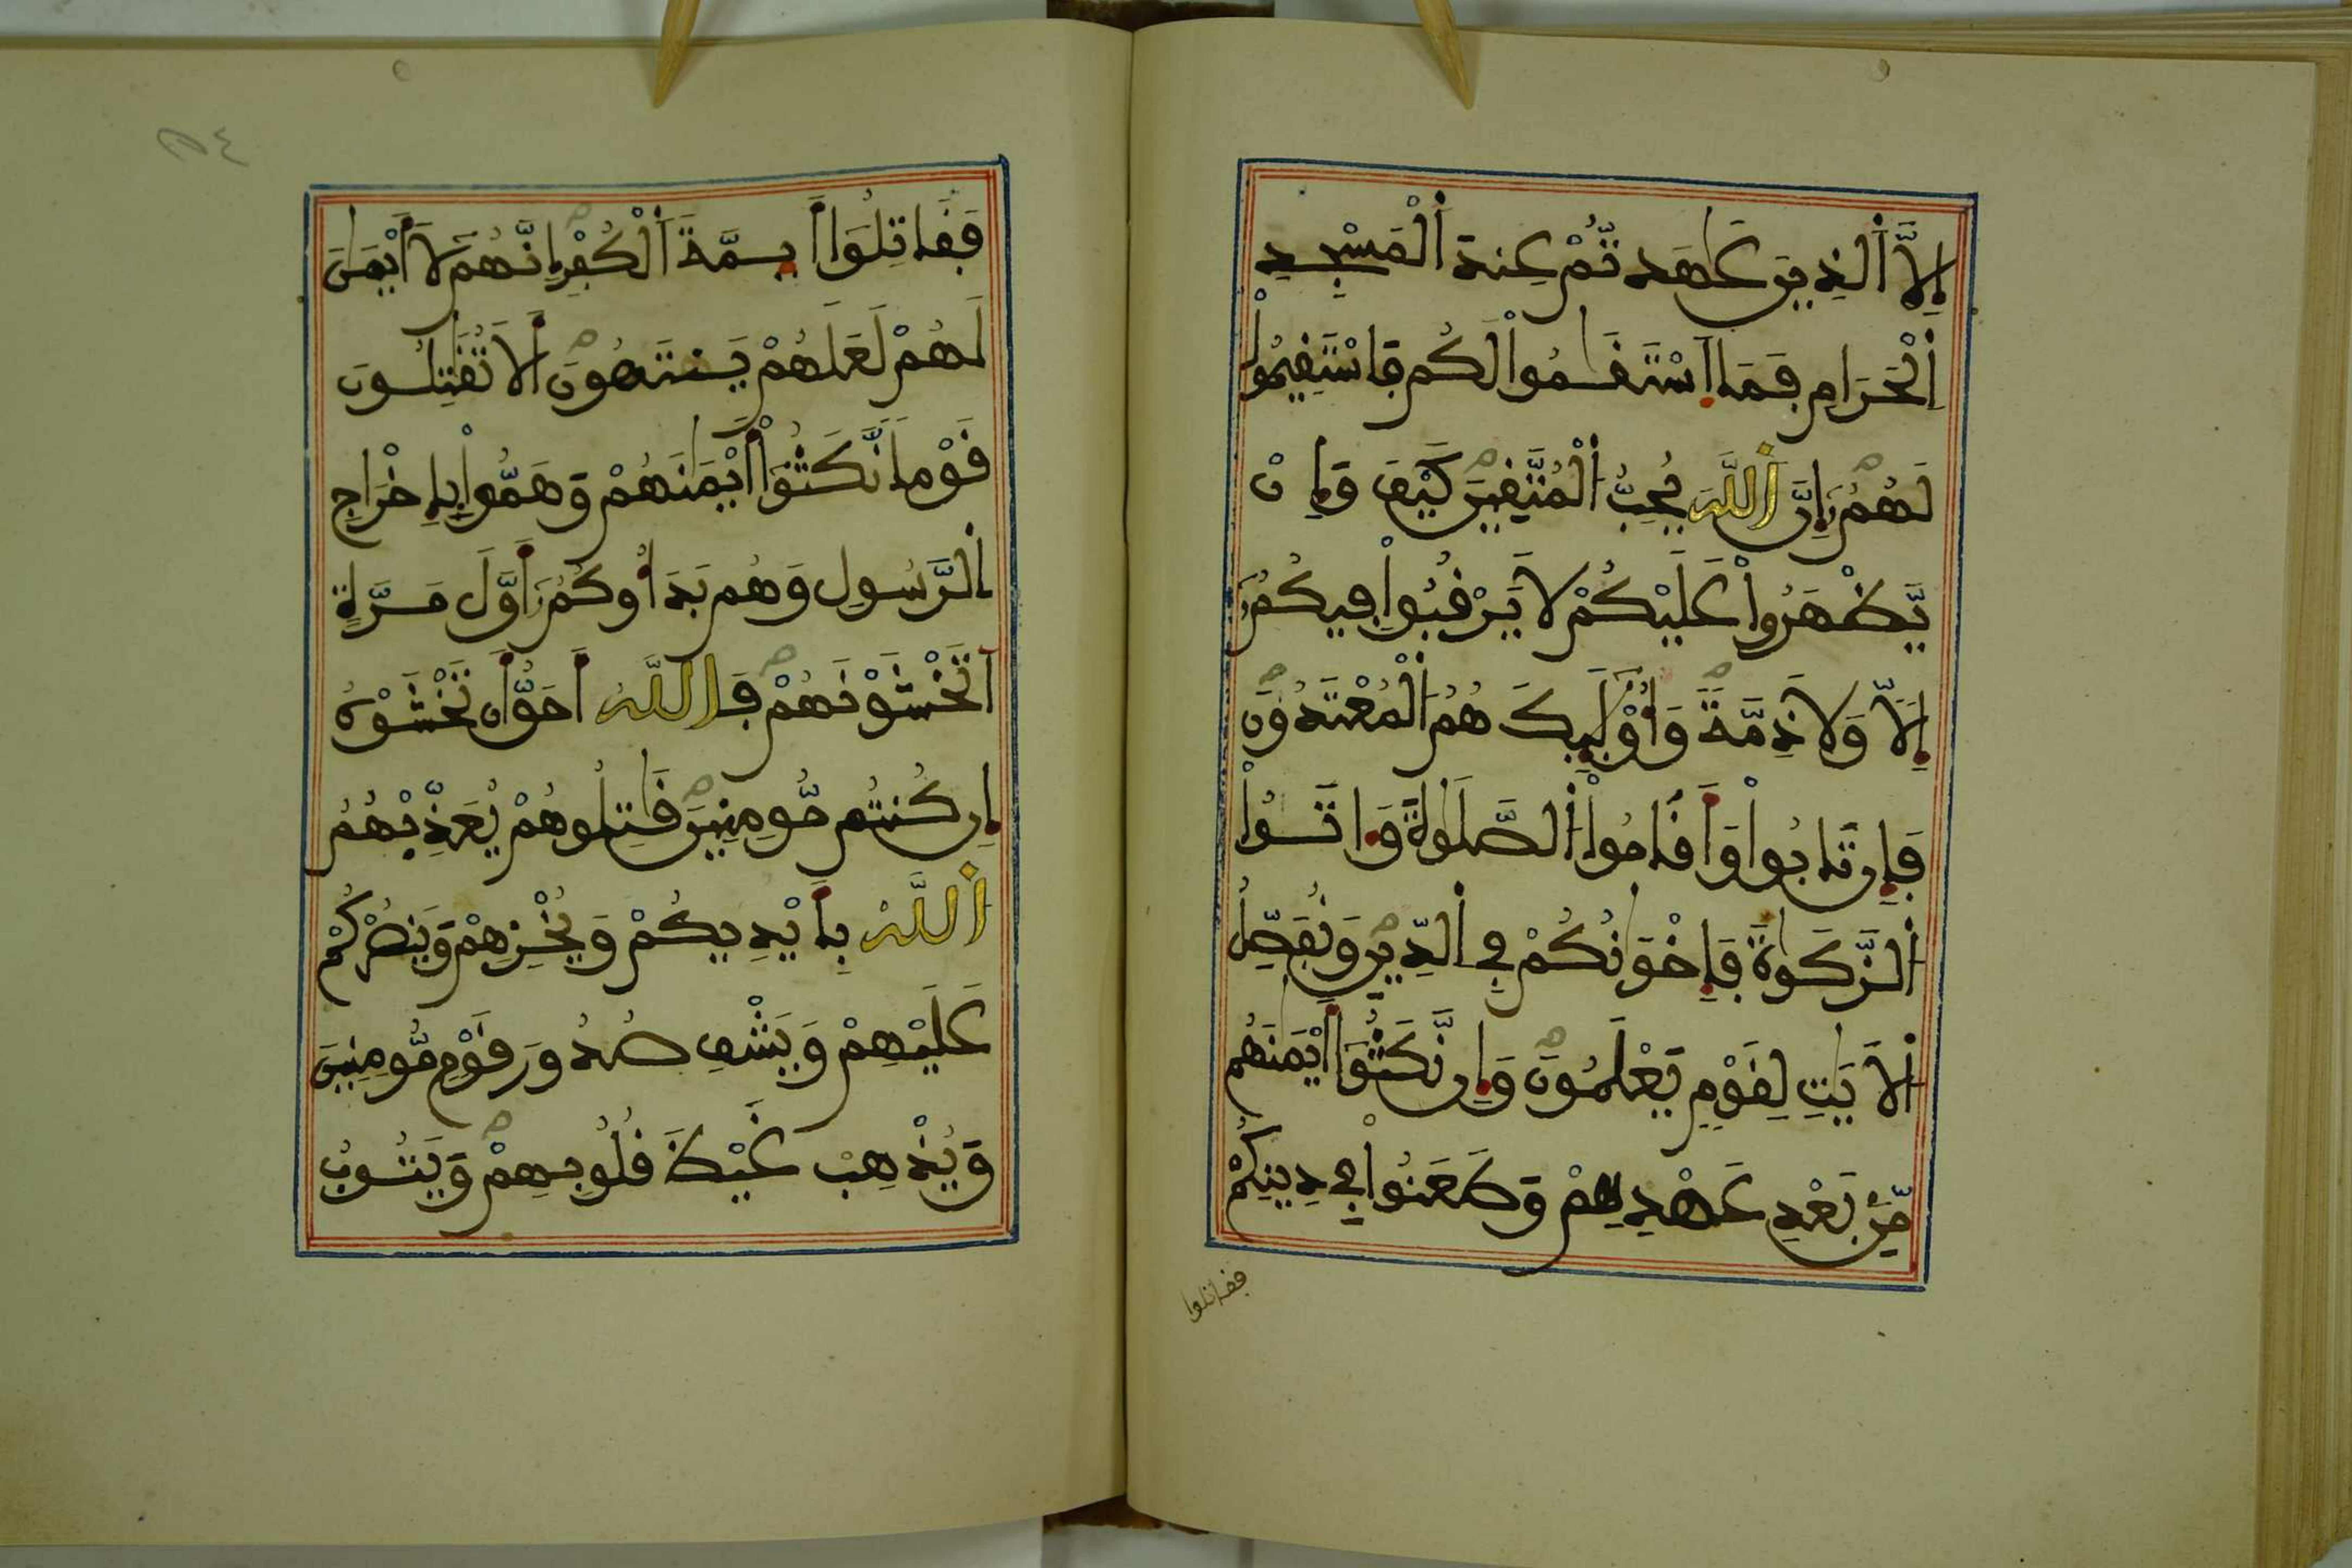 إِلَّا اَ۬لذِينَ عَٰهَدتُّمْ عِندَ اَ۬لْمَسْجِدِ
اِ۬لْحَرَامِ فَمَا اَ۪سْتَقَٰمُواْ لَكُمْ فَاسْتَقِيمُواْ
لَهُمُۥٓ إِنَّ اَ۬للَّهَ يُحِبُّ اُ۬لْمُتَّقِينَ كَيْفَ وَإِنْ
يَّظْهَرُواْ عَلَيْكُمْ لَا يَرْقُبُواْ فِيكُمُۥٓ
إِلّاً وَلَا ذِمَّةً وَأُوْلَٰٓئِكَ هُمُ اُ۬لْمُعْتَدُونَ
فَإِن تَابُواْ وَأَقَامُواْ اُ۬لصَّلَوٰةَ وَءَاتَوُاْ
اُ۬لزَّكَوٰةَ فَإِخْوَٰنُكُمْ فِي اِ۬لدِّينِ وَنُفَصِّلُ
اُ۬لْأَيَٰتِ لِقَوْمٍ يَعْلَمُونَ وَإِن نَّكَثُوٓاْ أَيْمَٰنَهُم
مِّنۢ بَعْدِ عَهْدِهِمْ وَطَعَنُواْ فِي دِينِكُمْ
فقاتلوا
٥٤
فَقَٰتِلُوٓاْ أَئِمَّةَ اَ۬لْكُفْرِ إِنَّهُمْ لَا أَيْمَٰنَ
لَهُمْ لَعَلَّهُمْ يَنتَهُونَ أَلَا تُقَٰتِلُونَ
قَوْماً نَّكَثُوٓاْ أَيْمَٰنَهُمْ وَهَمُّواْ بِإِخْرَاجِ
اِ۬لرَّسُولِ وَهُم بَدَءُوكُمُۥٓ أَوَّلَ مَرَّةٍ
اَتَخْشَوْنَهُمْ فَاللَّهُ أَحَقُّ أَن تَخْشَوْهُ
إِن كُنتُم مُّومِنِينَ قَٰتِلُوهُمْ يُعَذِّبْهُمُ
اُ۬للَّهُ بِأَيْدِيكُمْ وَيُخْزِهِمْ وَيَنصُرْكُمْ
عَلَيْهِمْ وَيَشْفِ صُدُورَ قَوْمٍ مُّومِنِينَ
وَيُذْهِبْ غَيْظَ قُلُوبِهِمْ وَيَتُوبُ